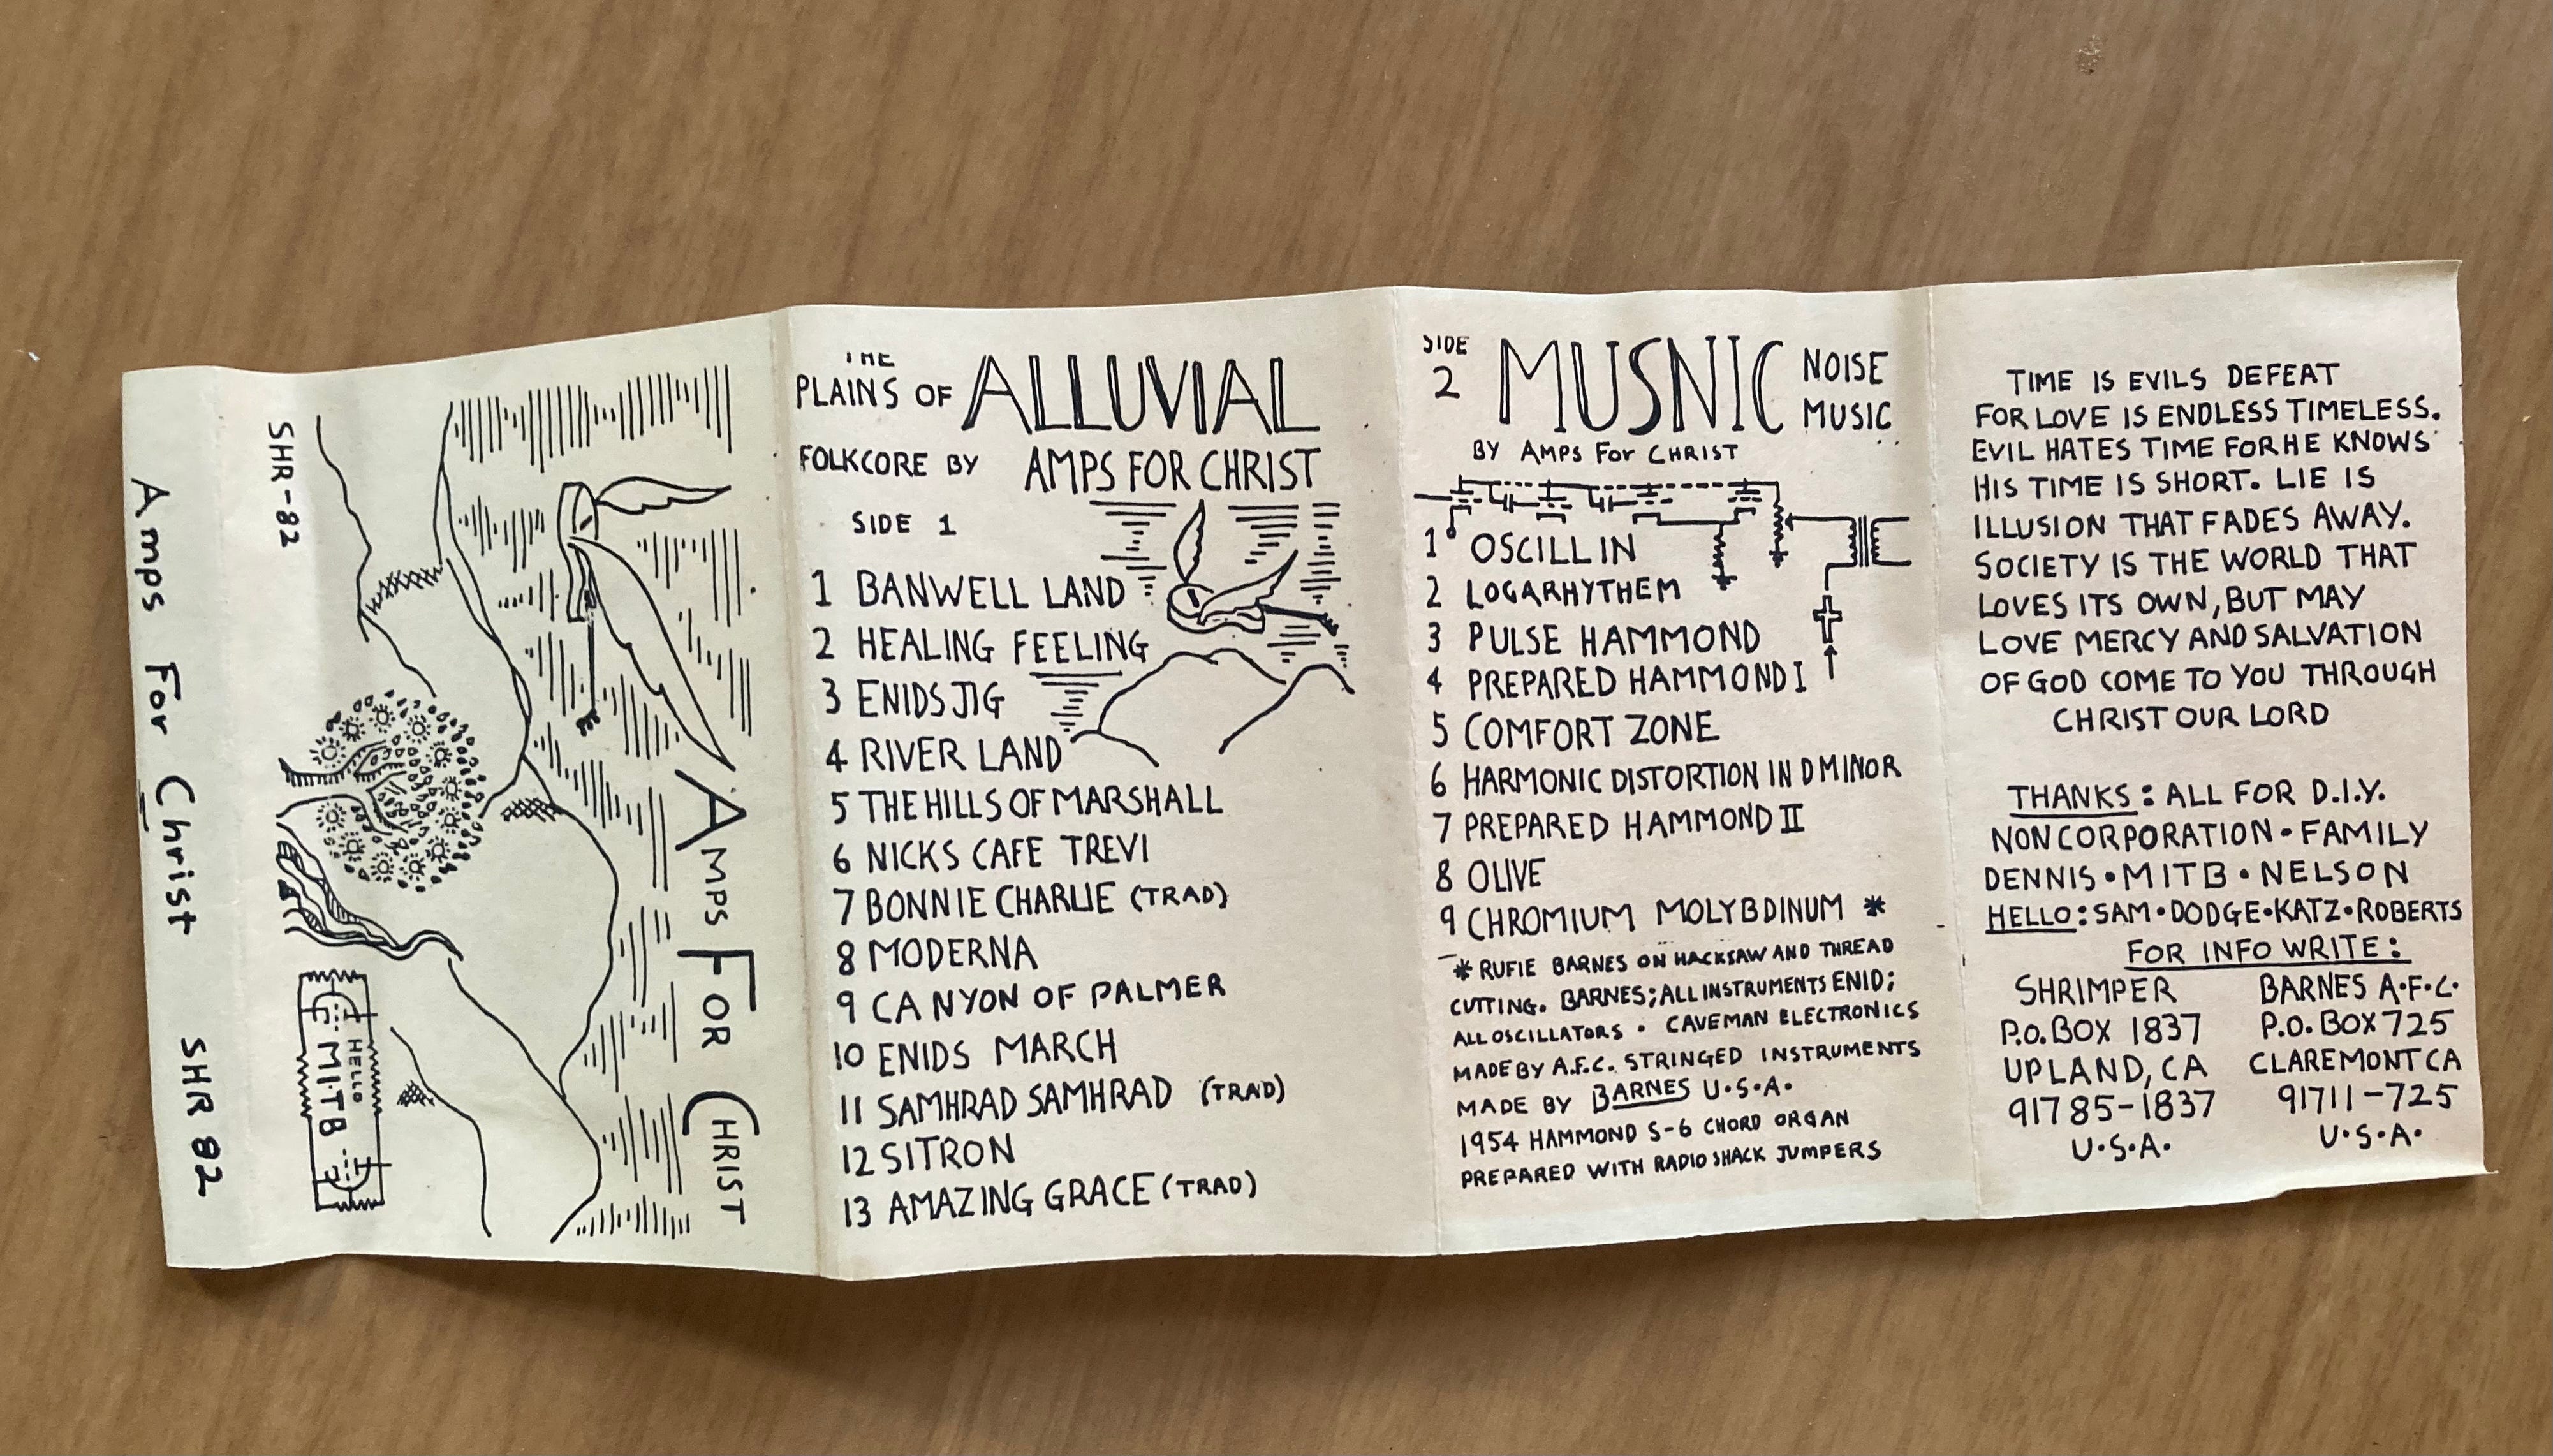 Amps For Christ SHR 82
SHR-82
AMPS FOR CHRIST
HELLO
MITB
THE
PLAINS OF ALLUVIAL
FOLKCORE BY AMPS FOR CHRIST
SIDE 1
1 BANWELL LAND
2 HEALING FEELING
3 ENIDS JIG
4 RIVER LAND
5 THE HILLS OF MARSHALL
6 NICKS CAFE TREVI
7 BONNIE CHARLIE (TRAD)
8 MODERNA
9 CANYON OF PALMER
10 ENIDS MARCH
11 SAMHRAD SAMHRAD (TRAD)
12 SITRON
13 AMAZING GRACE (TRAD)
SIDE 2 MUSNIC NOISE MUSIC
BY AMPS FOR CHRIST
1 OSCILLIN
2 LOGARHYTHEM
3 PULSE HAMMOND
4 PREPARED HAMMOND I
5 COMFORT ZONE
6 HARMONIC DISTORTION IN D MINOR
7 PREPARED HAMMOND II
8 OLIVE
9 CHROMIUM MOLYBDINUM *
* RUFIE BARNES ON HACKSAW AND THREAD
CUTTING. BARNES; ALL INSTRUMENTS ENID;
ALL OSCILLATORS • CAVEMAN ELECTRONICS
MADE BY A.F.C. STRINGED INSTRUMENTS
MADE BY BARNES U.S.A.
1954 HAMMOND S-6 CHORD ORGAN
PREPARED WITH RADIO SHACK JUMPERS
TIME IS EVILS DEFEAT
FOR LOVE IS ENDLESS TIMELESS.
EVIL HATES TIME FOR HE KNOWS
HIS TIME IS SHORT. LIE IS
ILLUSION THAT FADES AWAY.
SOCIETY IS THE WORLD THAT
LOVES ITS OWN, BUT MAY
LOVE MERCY AND SALVATION
OF GOD COME TO YOU THROUGH
CHRIST OUR LORD
THANKS: ALL FOR D.I.Y.
NON CORPORATION • FAMILY
DENNIS • MITB • NELSON
HELLO: SAM • DODGE • KATZ • ROBERTS
FOR INFO WRITE:
SHRIMPER
P.O. BOX 1837
UPLAND, CA
91785-1837
U.S.A.
BARNES A.F.C.
P.O. BOX 725
CLAREMONT CA
91711-725
U.S.A.